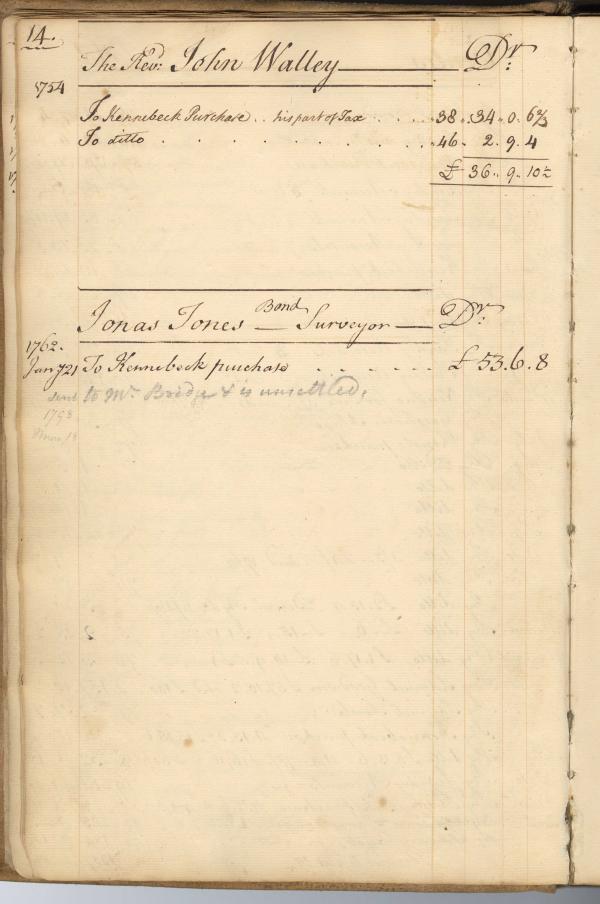 14.
The Revd. John Walley Dr.
1754
To Kennebeck Purchase .. his part of Tax . . . . 38 . 34 . 0 . 6 2/3
To ditto . . . . . . . . 46 . 2 . 9 . 4
£ 36 . 9 . 10 1/2
Jonas Jones Bond Surveyor Dr.
1762.
Jany 21 To Kennebeck purchase . . . . . . £ 53 . 6 . 8
sent to Mr. Bridge & is unsettled.
1798